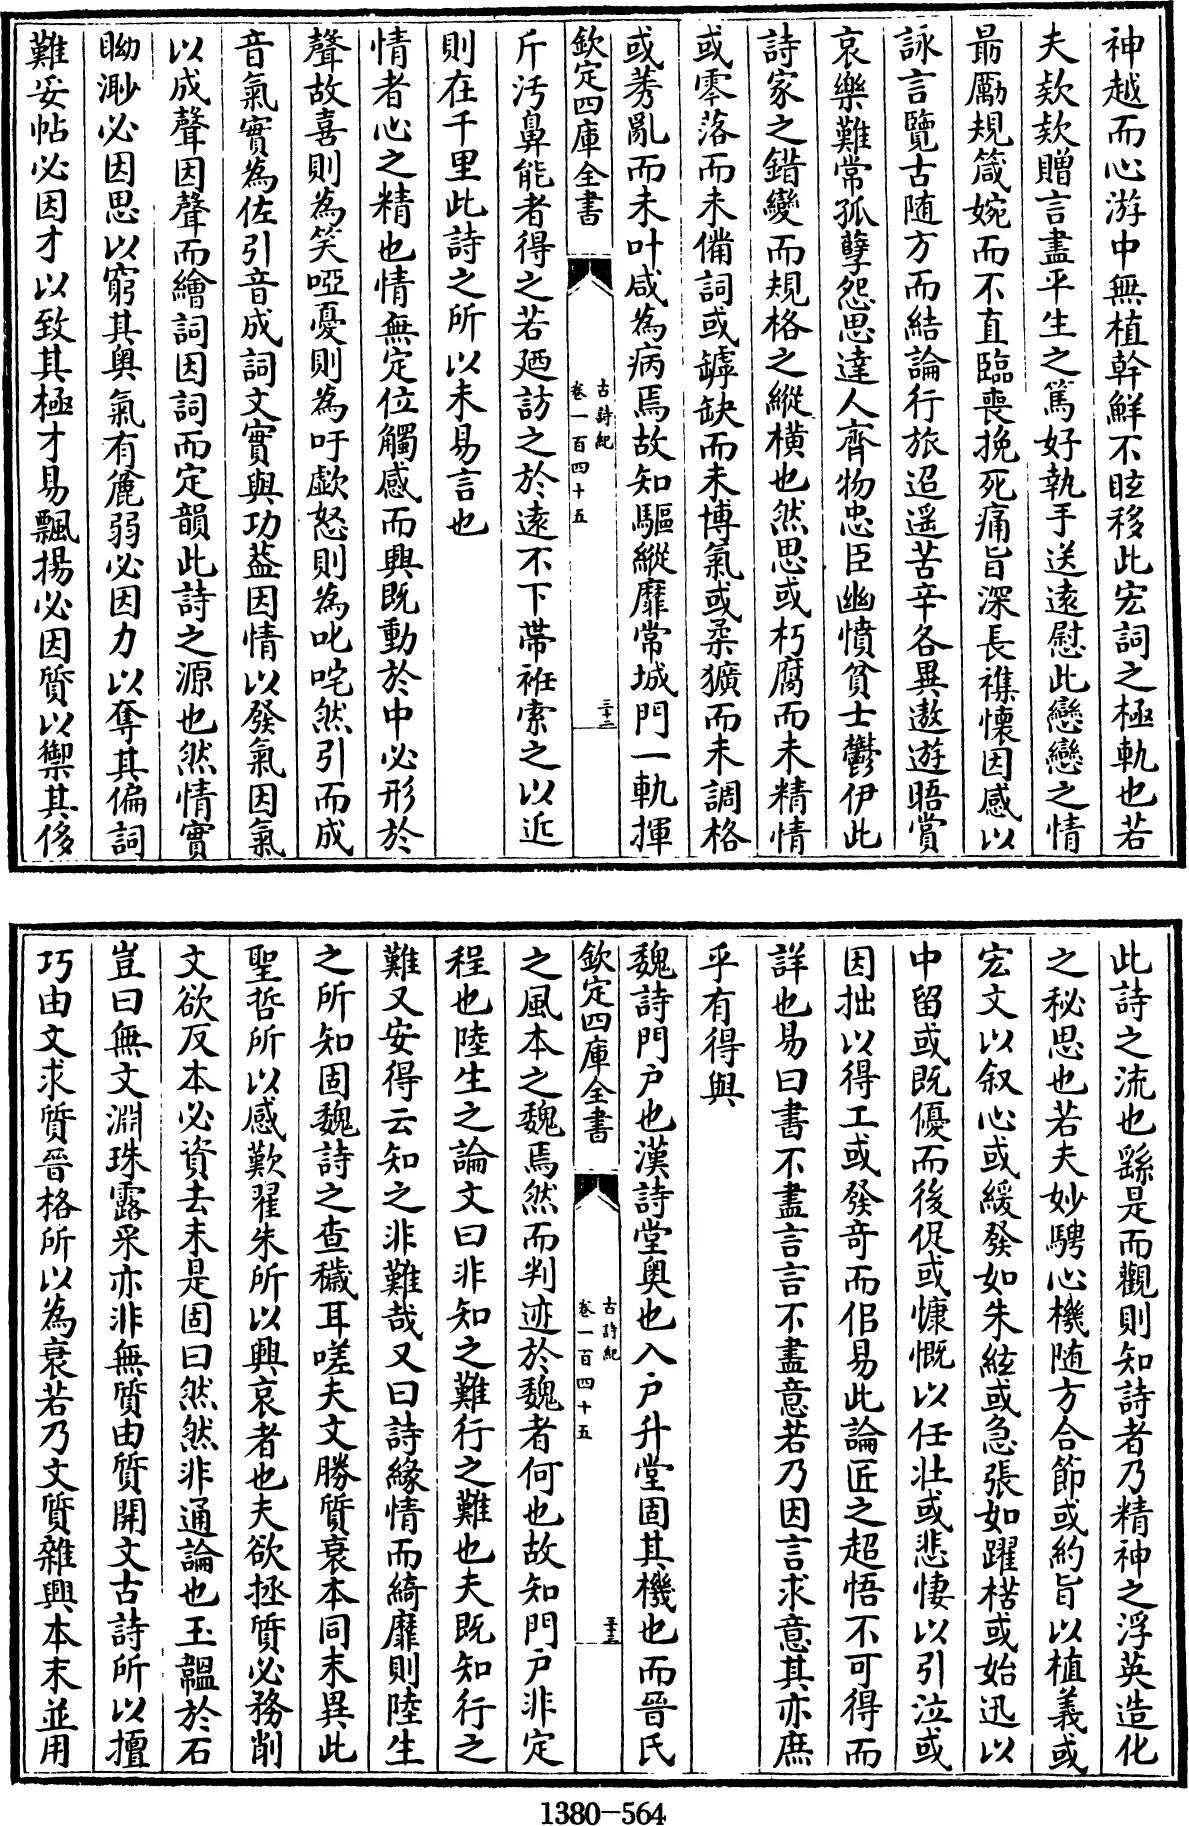 神越而心游中無植幹鮮不眩移此宏詞之極軌也若
夫欵欵贈言盡平生之篤好執手送遠慰此戀戀之情
朂勵規箴婉而不直臨喪挽死痛旨深長襍懷因感以
詠言覽古随方而結論行旅迢遥苦辛各異遨遊晤賞
哀樂難常孤孽怨思達人齊物忠臣幽憤貧士鬱伊此
詩家之錯變而規格之縱横也然思或朽腐而未精情
或零落而未備詞或罅缺而未博氣或柔獷而未調格
或莠亂而未叶咸為病焉故知驅縱靡常城門一軌揮
欽定四庫全書
古詩紀
卷一百四十五
三十二
斤汚鼻能者得之若廼訪之於遠不下帶袵索之以近
則在千里此詩之所以未易言也
情者心之精也情無定位觸感而興既動於中必形於
聲故喜則為笑啞憂則為吁歔怒則為叱咤然引而成
音氣實為佐引音成詞文實與功葢因情以發氣因氣
以成聲因聲而繪詞因詞而定韻此詩之源也然情實
眑渺必因思以窮其奥氣有麄弱必因力以奪其偏詞
難妥帖必因才以致其極才易飄揚必因質以禦其侈
此詩之流也繇是而觀則知詩者乃精神之浮英造化
之秘思也若夫妙騁心機随方合節或約旨以植義或
宏文以叙心或緩發如朱絃或急張如躍楛或始迅以
中留或既優而後促或慷慨以任壯或悲悽以引泣或
因拙以得工或發奇而佀易此論匠之超悟不可得而
詳也易曰書不盡言言不盡意若乃因言求意其亦庶
乎有得與
魏詩門户也漢詩堂奥也入户升堂固其機也而晉氏
欽定四庫全書
古詩紀
卷一百四十五
三十三
之風本之魏焉然而判迹於魏者何也故知門户非定
程也陸生之論文曰非知之難行之難也夫既知行之
難又安得云知之非難哉又曰詩緣情而綺靡則陸生
之所知固魏詩之查穢耳嗟夫文勝質衰本同末異此
聖哲所以感歎翟朱所以興哀者也夫欲拯質必務削
文欲反本必資去末是固曰然然非通論也玉韞於石
豈曰無文淵珠露采亦非無質由質開文古詩所以擅
巧由文求質晉格所以為衰若乃文質雜興本末並用
1380-564